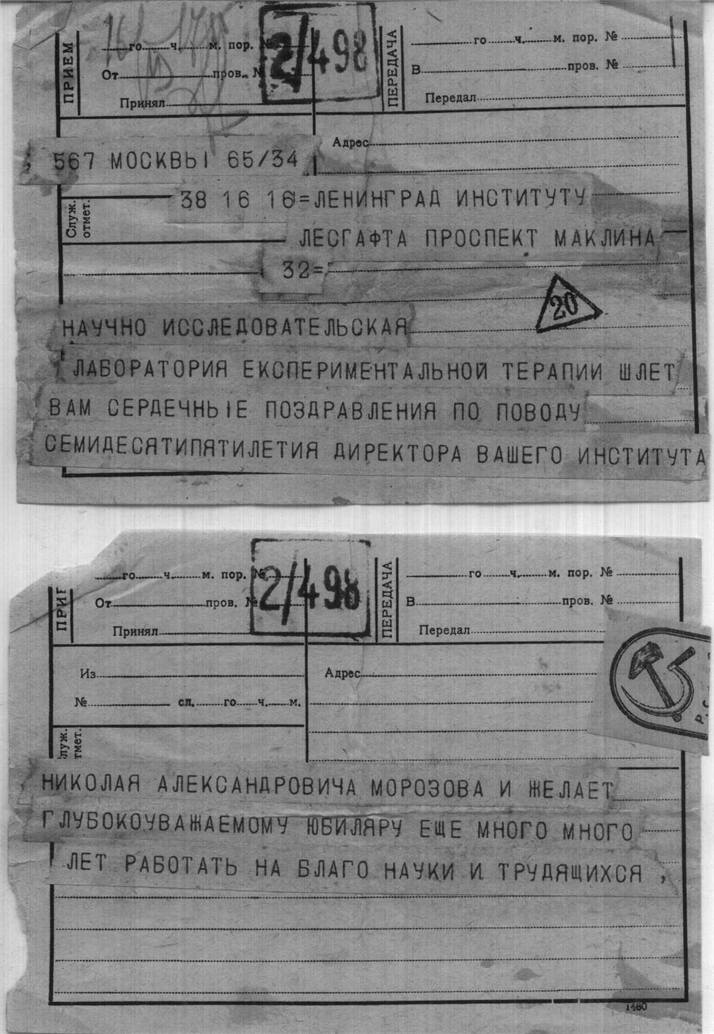 2/498
ПРИЕМ
го ч. м. пор. №
От пров. №
Принял
ПЕРЕДАЧА
го ч. м. пор. №
В пров. №
Передал
Адрес
; 567 МОСКВЫ 65/34
Служ. отмет.
38 16 16=ЛЕНИНГРАД ИНСТИТУТУ
ЛЕСГАФТА ПРОСПЕКТ МАКЛИНА
32=
20
НАУЧНО ИССЛЕДОВАТЕЛЬСКАЯ
ЛАБОРАТОРИЯ ЕКСПЕРИМЕНТАЛЬНОЙ ТЕРАПИИ ШЛЕТ
ВАМ СЕРДЕЧНЫЕ ПОЗДРАВЛЕНИЯ ПО ПОВОДУ
СЕМИДЕСЯТИПЯТИЛЕТИЯ ДИРЕКТОРА ВАШЕГО ИНСТИТУТА
2/498
ПРИ
го ч. м. пор. №
От пров. №
Принял
ПЕРЕДАЧА
го ч. м. пор. №
В пров. №
Передал
Из
№ сл. го ч. м.
Адрес
Служ. отмет.
НИКОЛАЯ АЛЕКСАНДРОВИЧА МОРОЗОВА И ЖЕЛАЕТ
ГЛУБОКОУВАЖАЕМОМУ ЮБИЛЯРУ ЕЩЕ МНОГО МНОГО
ЛЕТ РАБОТАТЬ НА БЛАГО НАУКИ И ТРУДЯЩИХСЯ ,
1480